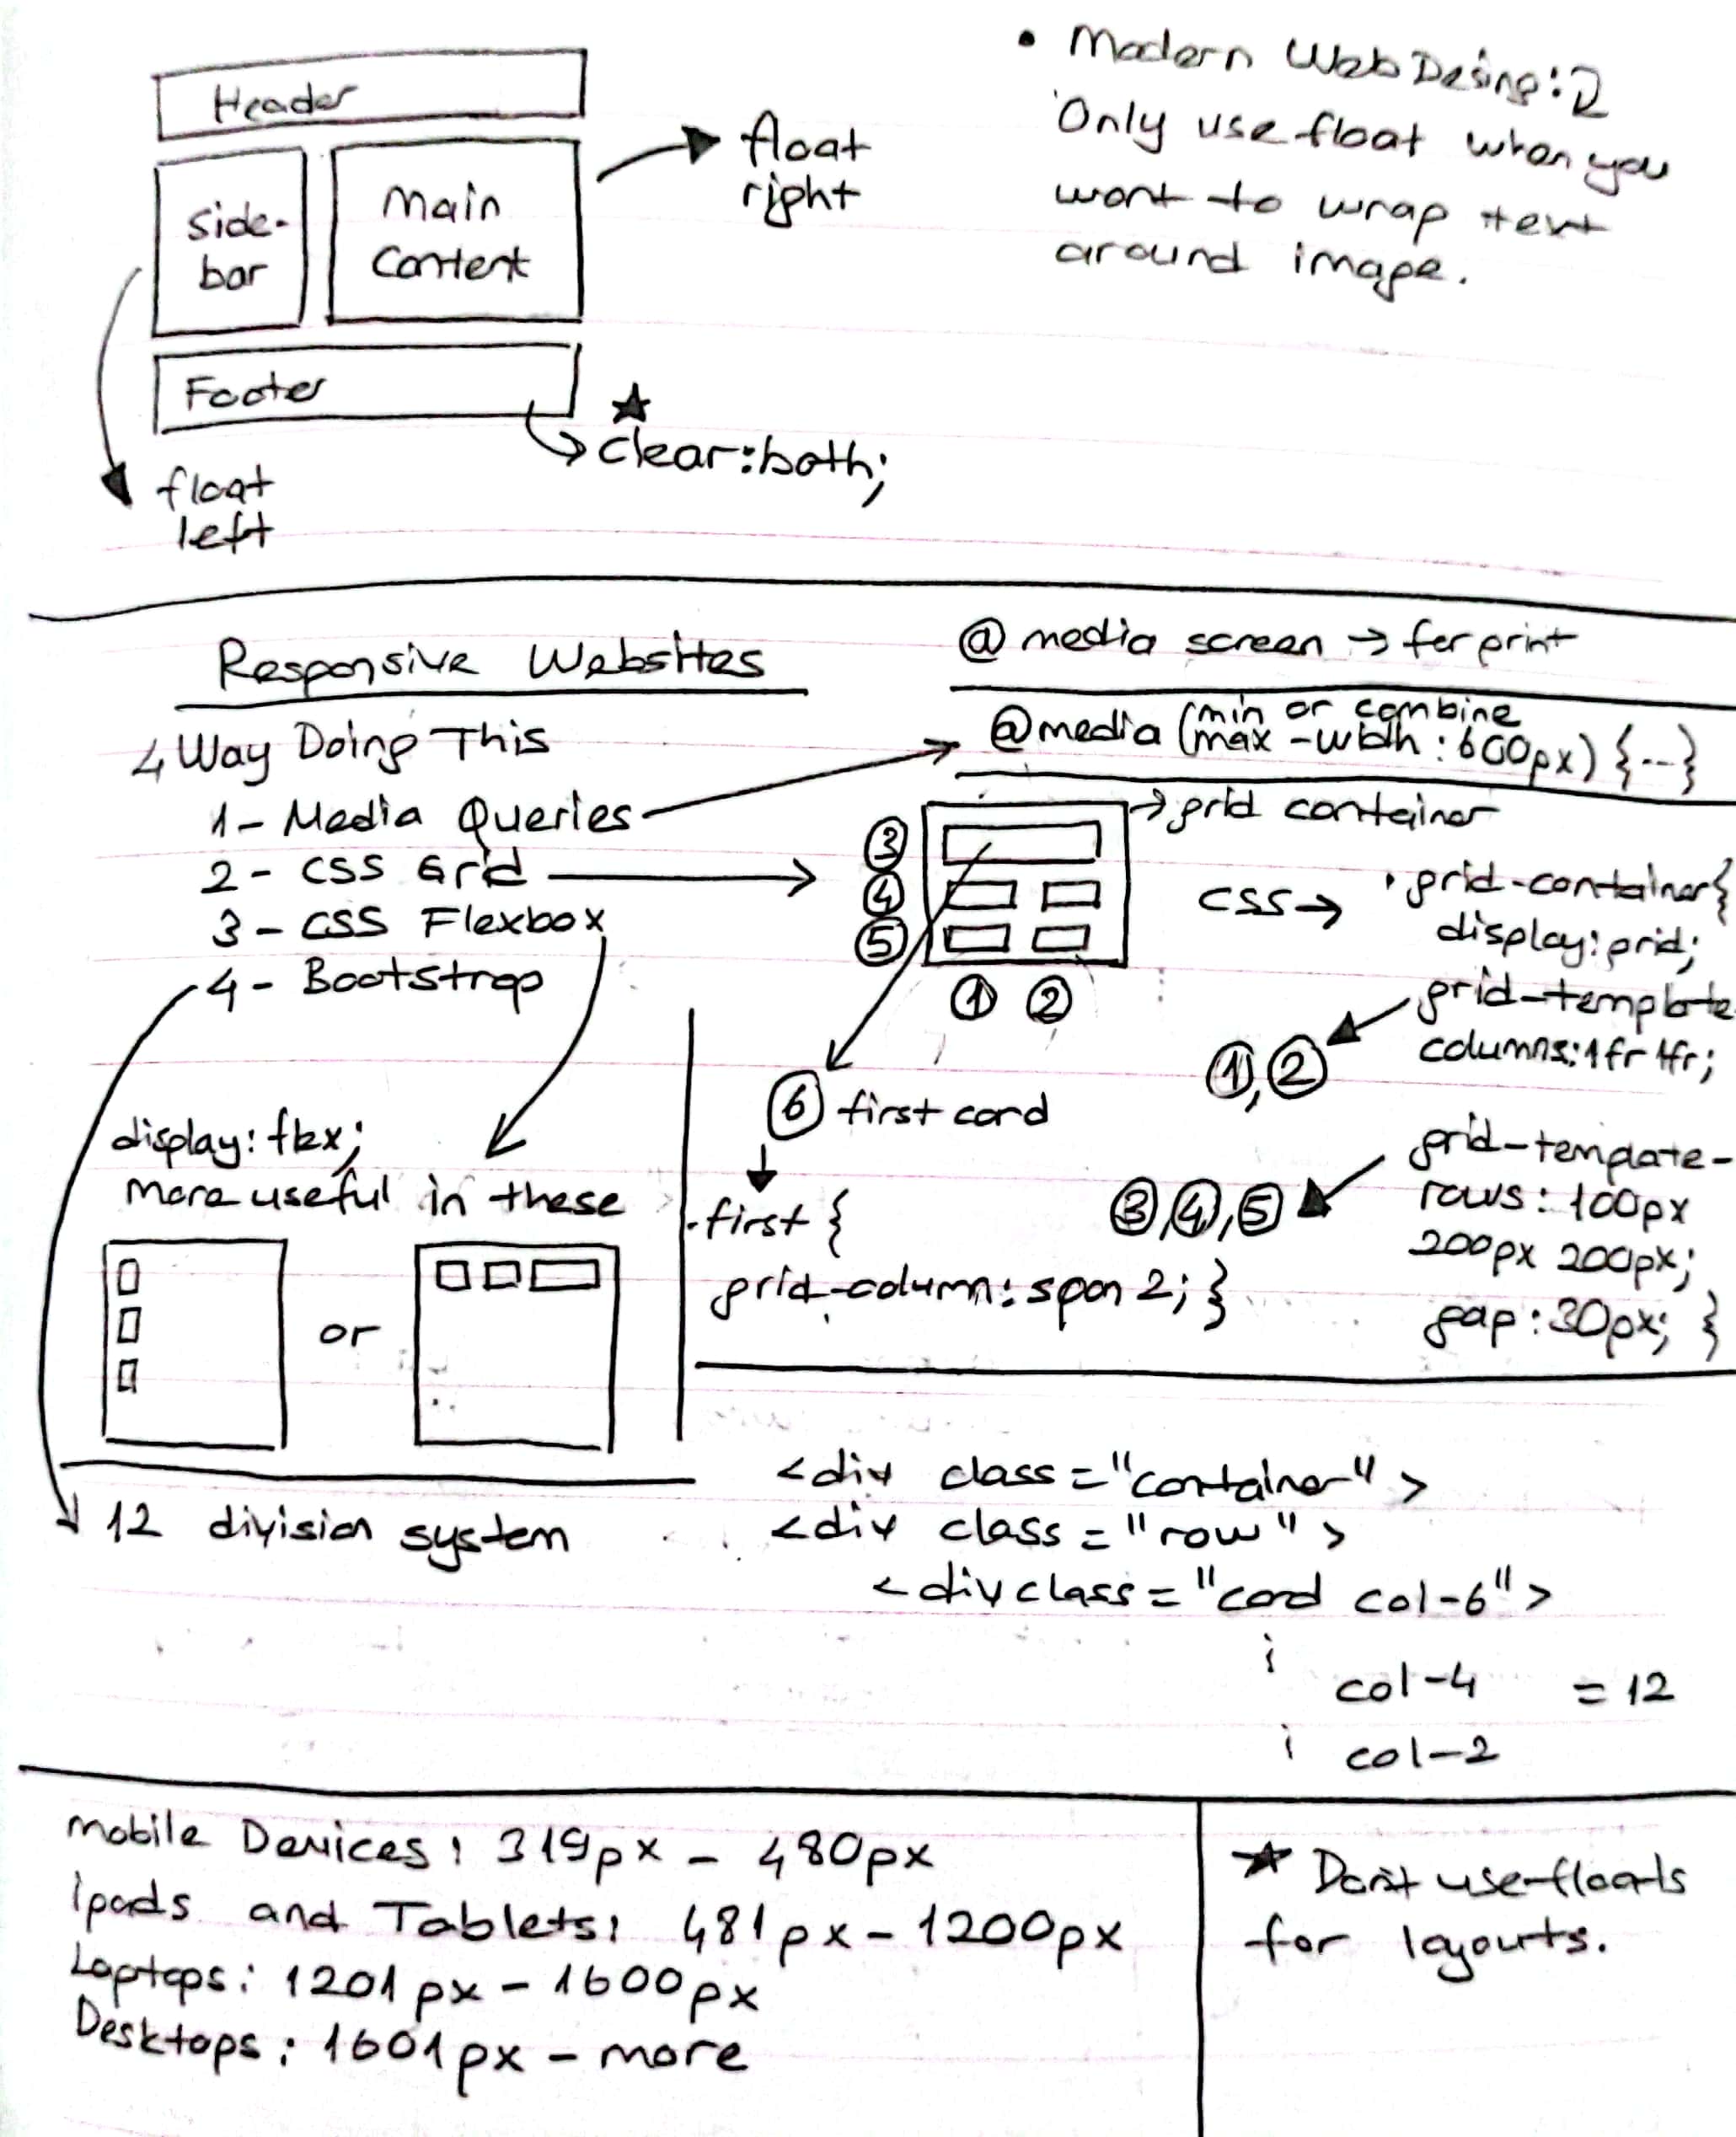 Header
Side-
bar
Main
Content
Footer
float
right
float
left
★
clear:both;
• Modern Web Desing:
Only use float when you
want to wrap text
around image.
Responsive Websites
4 Way Doing This
1- Media Queries
2- CSS Grid
3- CSS Flexbox
4- Bootstrap
@media screen → for print
@media (min or combine
max-width: 600px) {--}
→ grid container
3
4
5
1 2
6 first card
.first {
grid-column: span 2; }
CSS → .grid-container{
display: grid;
grid-template-
columns: 1fr 1fr;
1, 2
grid-template-
rows: 100px
200px 200px;
gap: 30px; }
3, 4, 5
display: flex;
more useful in these
or
12 division system
<div class="container">
<div class="row">
<div class="card col-6">
col-4 = 12
col-2
Mobile Devices: 319px - 480px
Ipads and Tablets: 481px - 1200px
Laptops: 1201px - 1600px
Desktops: 1601px - more
★ Don't use floats
for layouts.